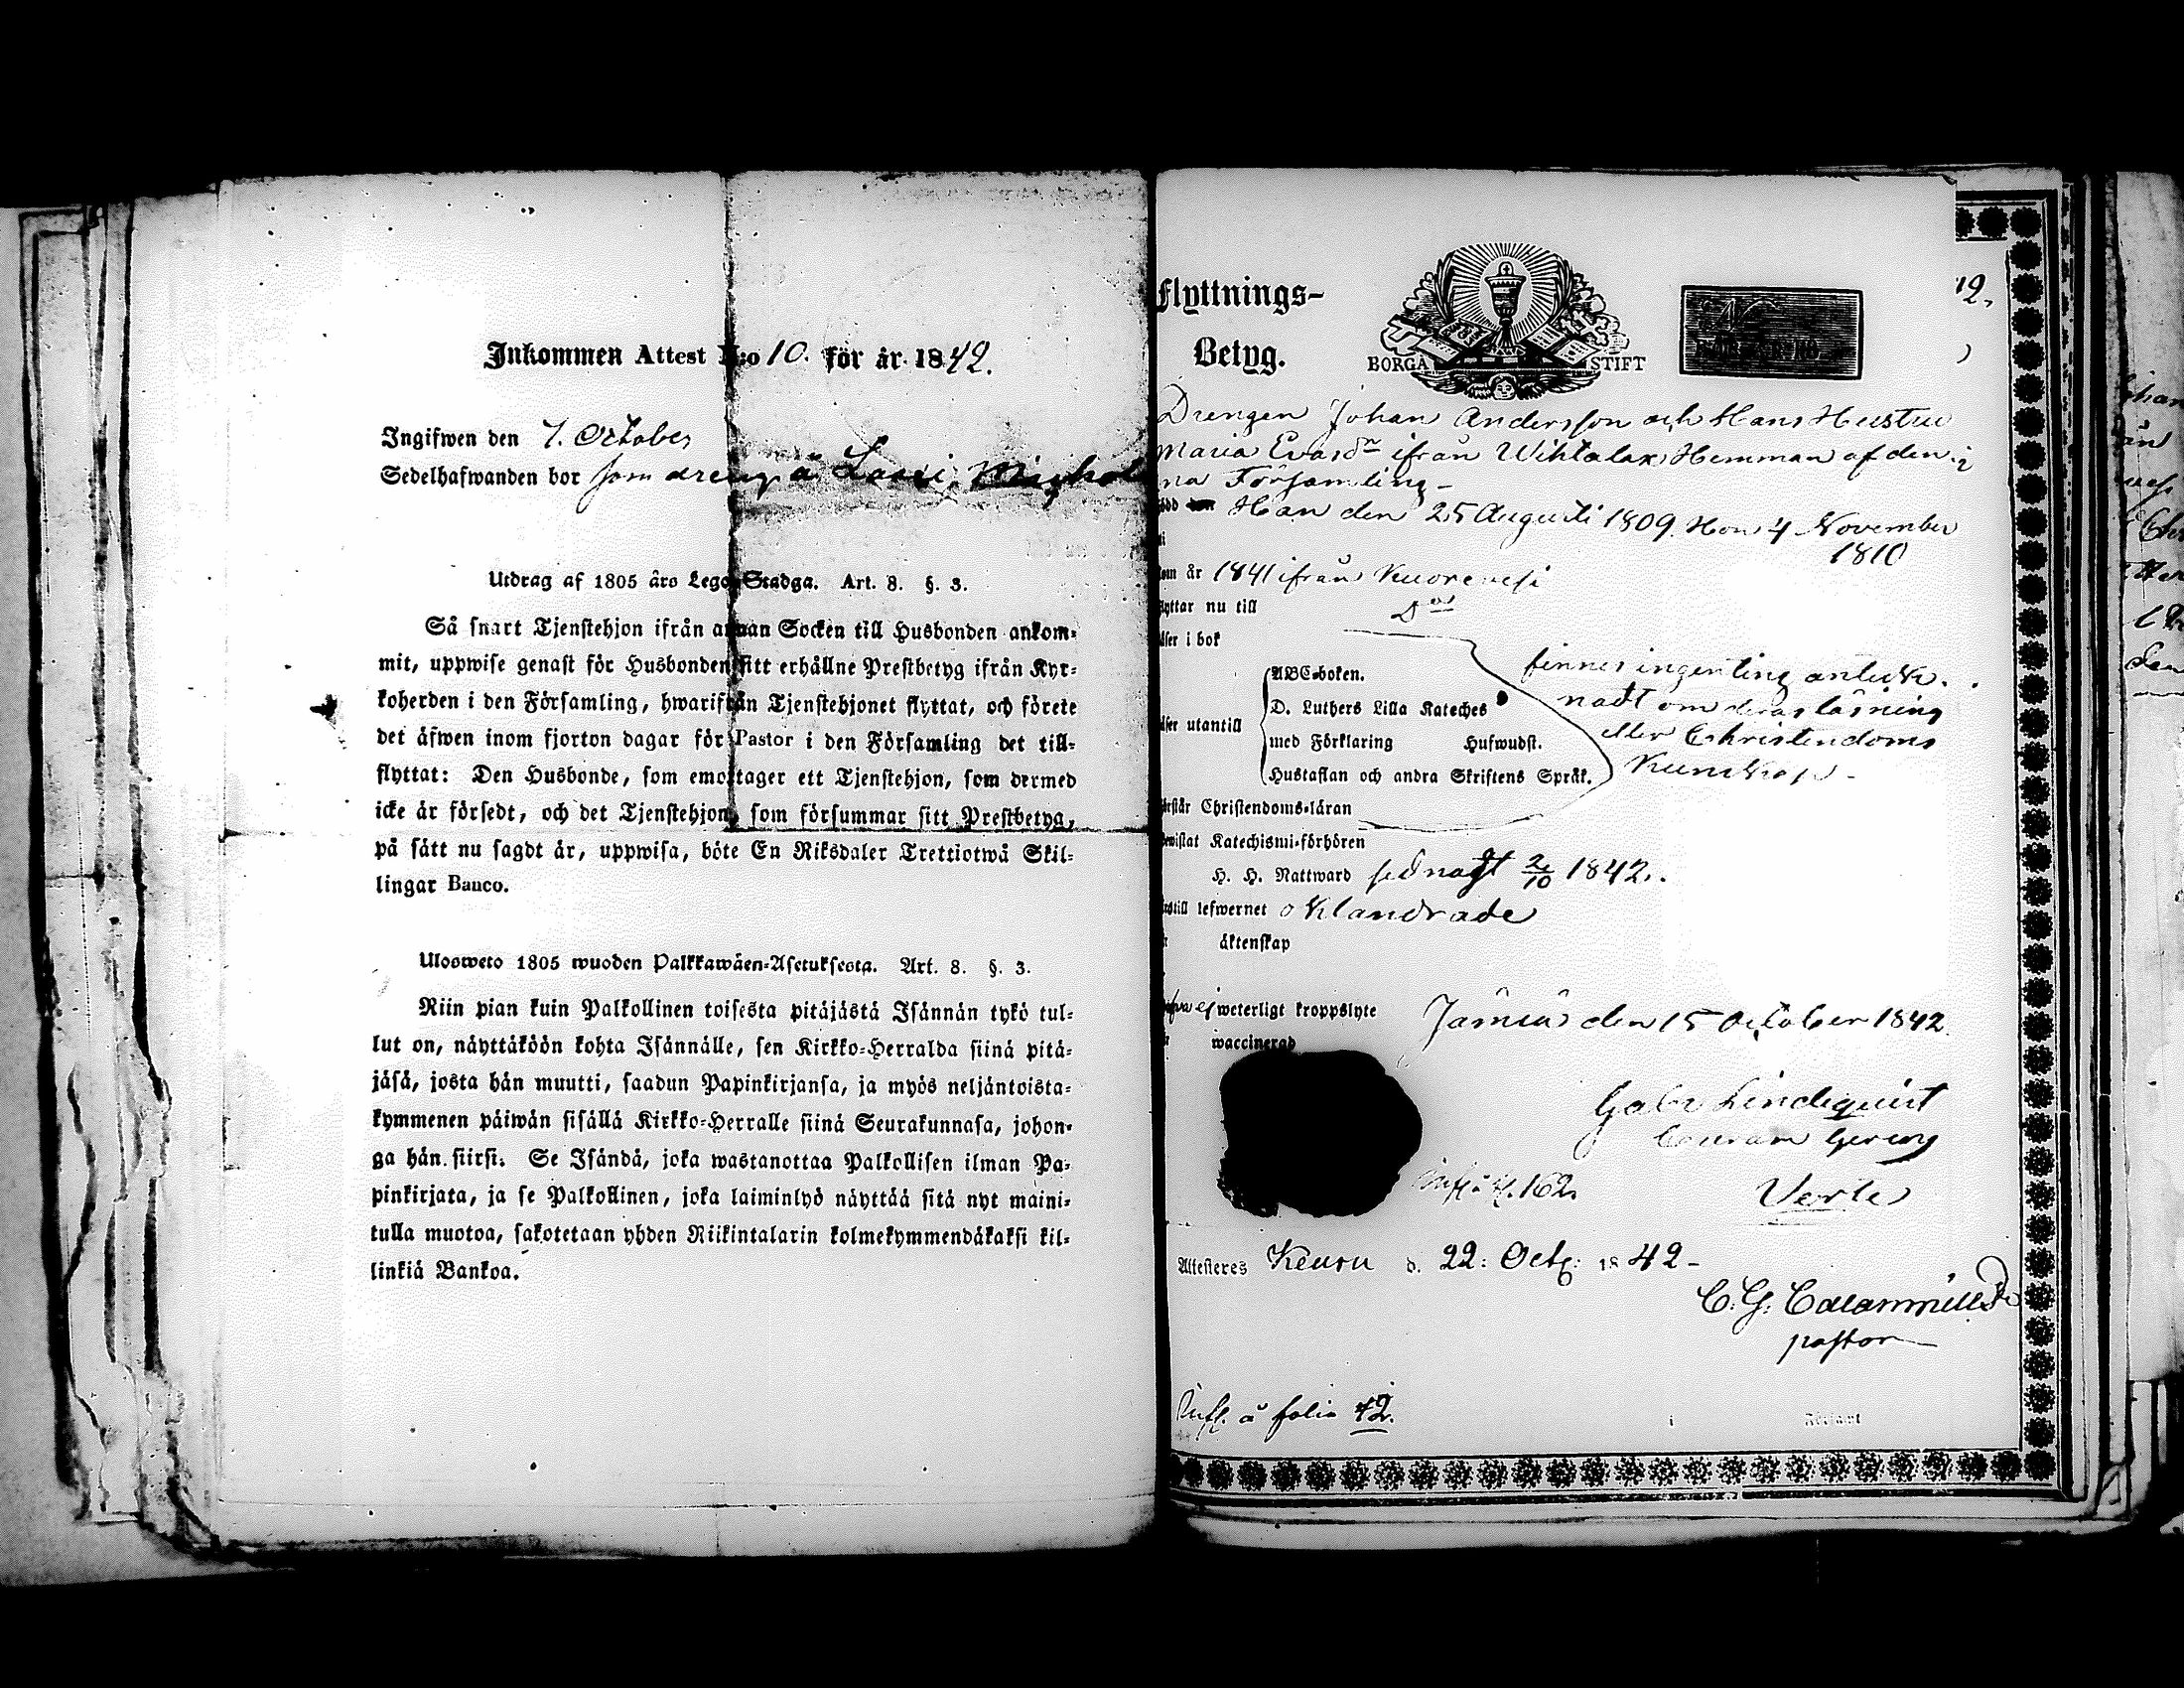 Inkommen Attest N:o 10. för år 1842.
Ingifwen den 7. October
Sedelhafwanden bor som dreng å
Utdrag af 1805 års Lego-Stadga. Art. 8. §. 3.
Så snart Tjenstehjon ifrån annan Socken till Husbonden ankom-
mit, uppwise genast för Husbonden sitt erhållne Prestbetyg ifrån Kyr-
koherden i den Församling, hwarifrån Tjenstehjonet flyttat, och förete
det äfwen inom fjorton dagar för Pastor i den Församling det till-
flyttat: Den Husbonde, som emottager ett Tjenstehjon, som dermed
icke är försedt, och det Tjenstehjon, som försummar sitt Prestbetyg,
på sätt nu sagdt är, uppwisa, böte En Riksdaler Trettiotwå Skil-
lingar Banco.
Ulosweto 1805 wuoden Palkkawäen-Asetuksesta. Art. 8. §. 3.
Niin pian kuin Palkollinen toisesta pitäjästä Isännän tykö tul-
lut on, näyttäköön kohta Isännälle, sen Kirkko-Herralda siinä pitä-
jäsä, josta hän muutti, saadun Papinkirjansa, ja myös neljäntoista-
kymmenen päiwän sisällä Kirkko-Herralle siinä Seurakunnasa, johon-
ga hän siirsi. Se Isändä, joka wastanottaa Palkollisen ilman Pa-
pinkirjata, ja se Palkollinen, joka laiminlyö näyttää sitä nyt maini-
tulla muotoa, sakotetaan yhden Riikintalarin kolmekymmendäkaksi kil-
linkiä Bankoa.
Flyttnings-
Betyg.
BORGÅ STIFT
Drengen Johan Andersson och Hans Hustru
Maria Evasdr ifrån Wihtalax Hemman af den
na Församling
Han den 25 Augusti 1809. Hon 4 November
1810
om år 1841 ifrån Kuorevesi
flyttar nu till
läser i bok
ABC-boken.
D. Luthers Lilla Kateches
läser utantill
med Förklaring Hufwudst.
Hustaflan och andra Skriftens Språk.
finnes ingenting anteck-
nadt om deras läsning
eller Christendoms
Kunskap
förstår Christendoms-läran
bewistat Katechismi-förhören
H. H. Nattward sednast 2/10 1842.
till lefwernet oklandrade
äktenskap
ej weterligt kroppslyte
waccinerad
Jämsä den 15 October 1842
Gabr Lindequist
162
Verte
Attesteres Keuru d. 22: Oct: 1842
pastor
å folio 42.